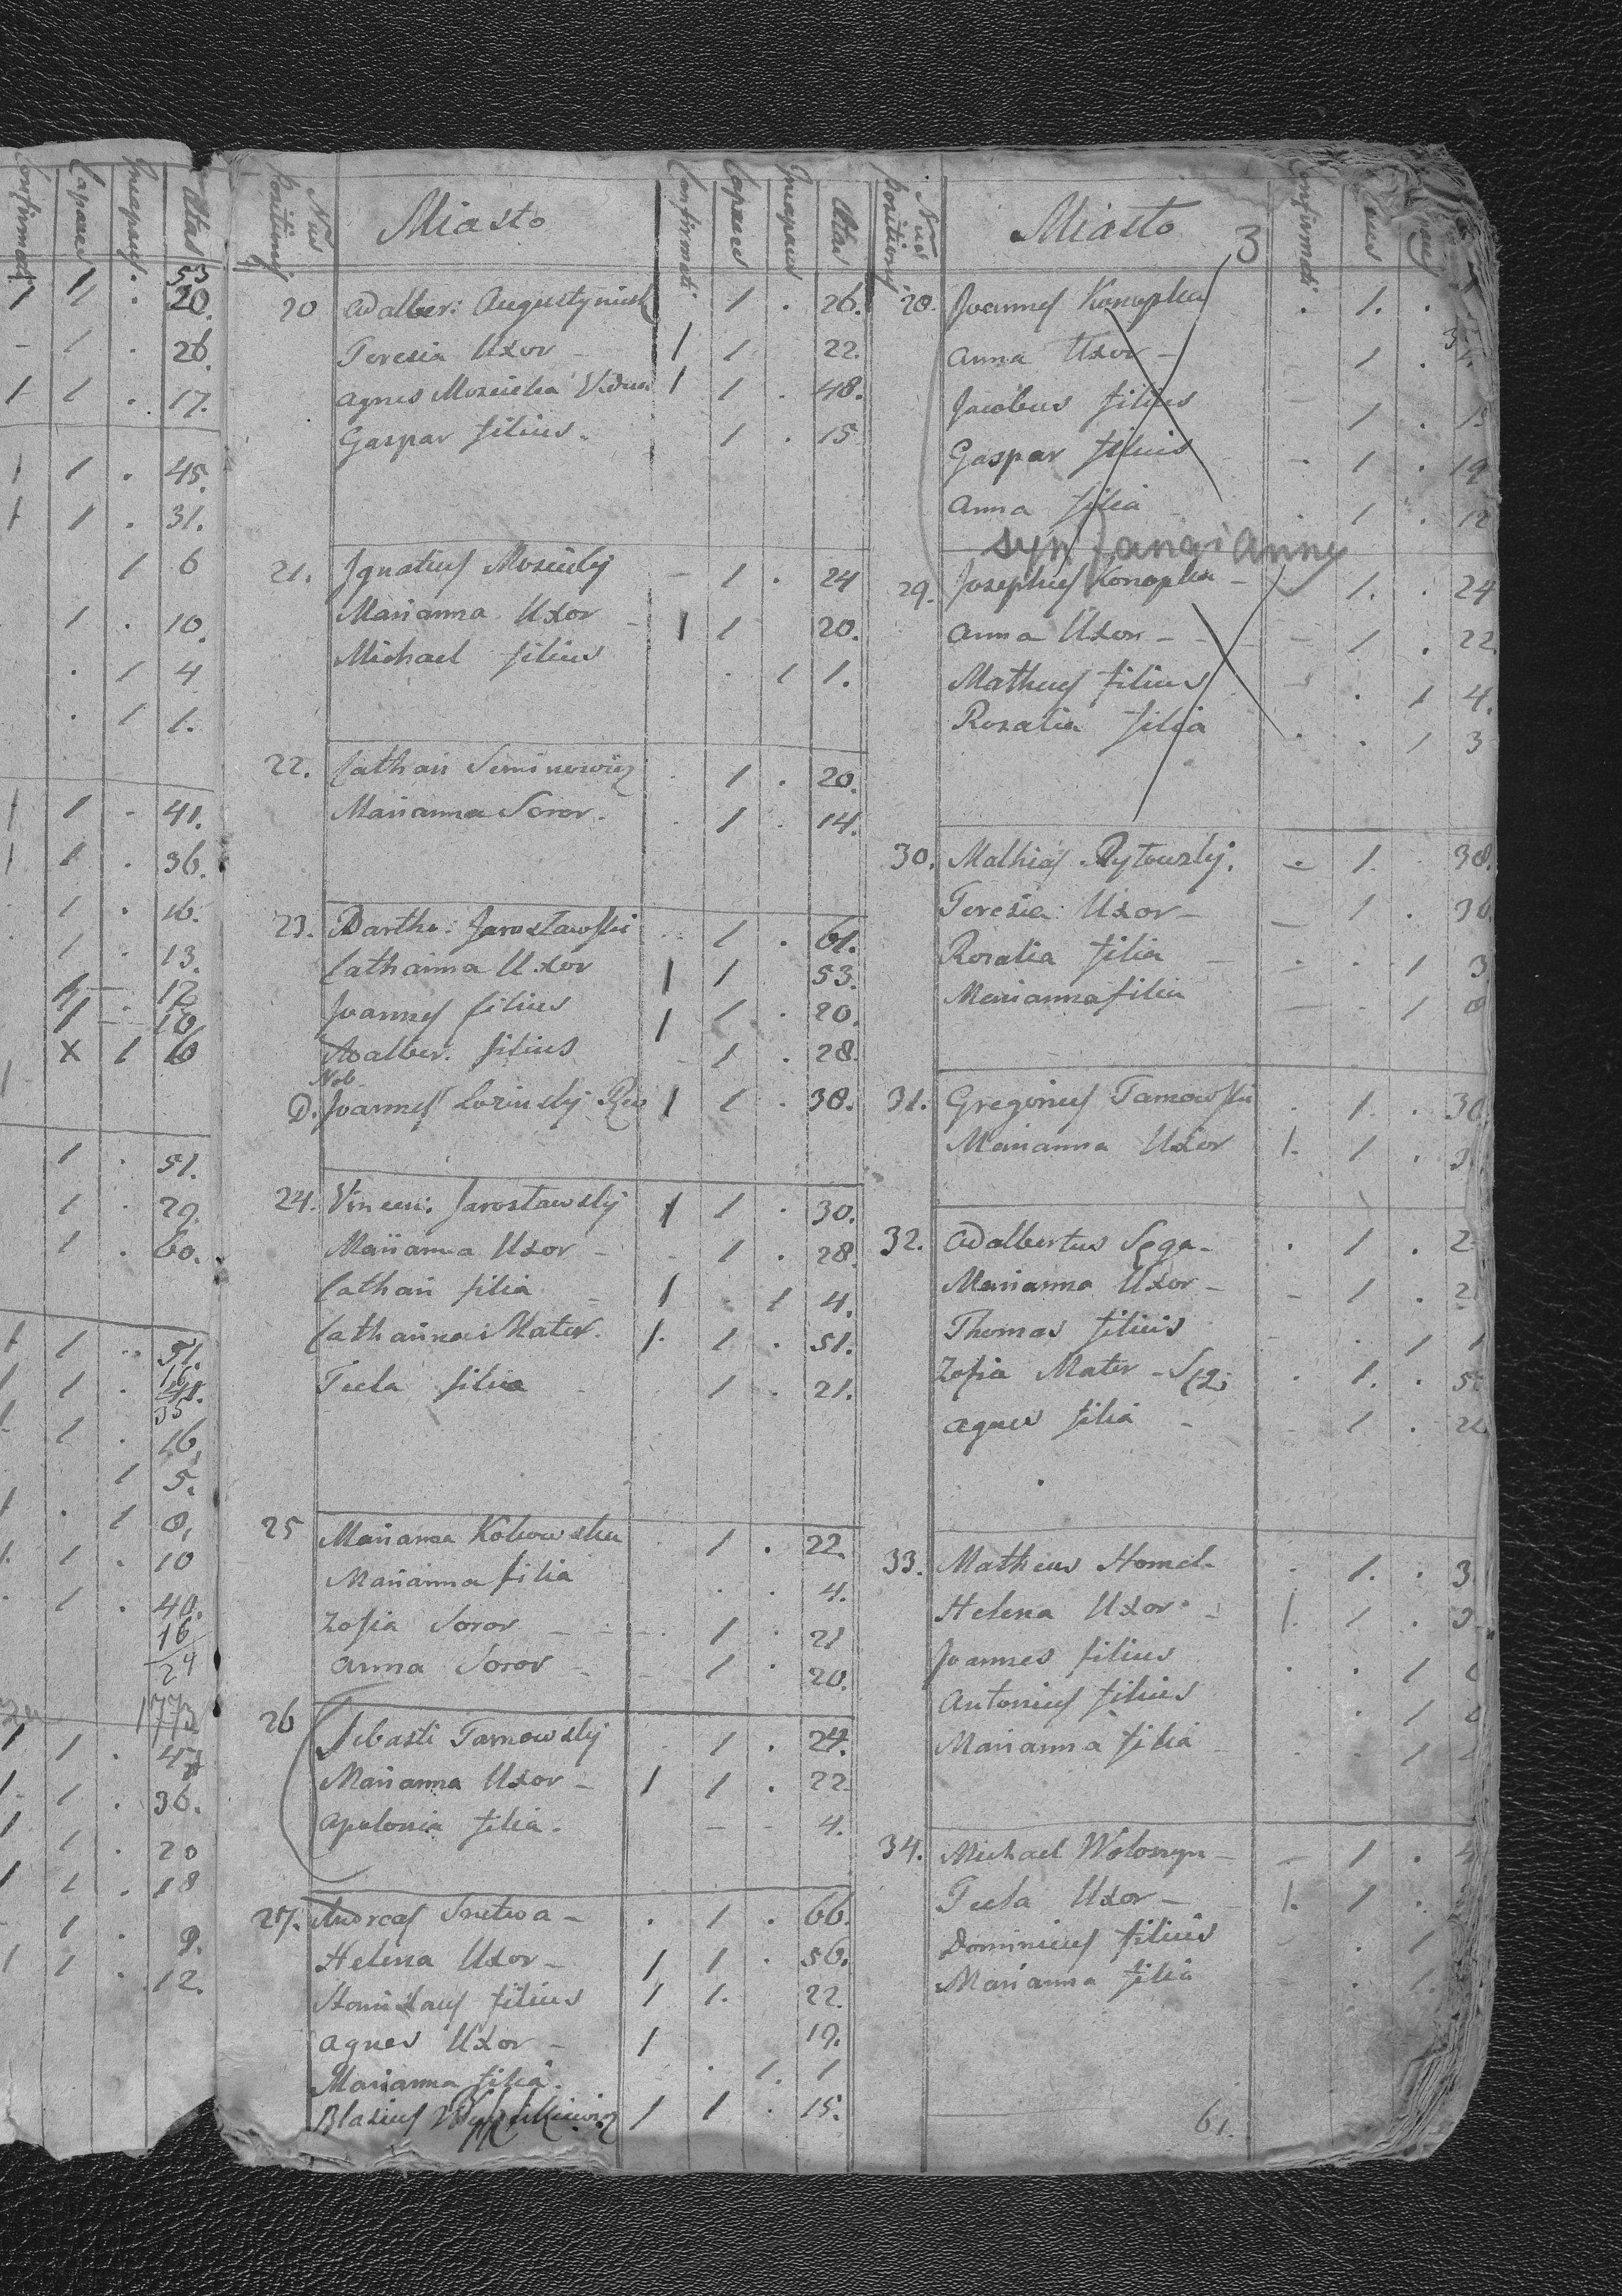 Confirmati Capaces Incapaces Ætas
1 1 . 53
20.
- 1 . 26.
1 1 . 17.
1 1 . 45.
1 1 . 31.
1 6
1 . 10.
. 1 4
. 1 1.
1 1 - 41.
1 1 . 36.
1 . 16.
1 . 13.
12
10
X 1 10
1 . 51.
1 . 29.
1 . 60.
1 1 . 51.
16
1 1 . 41.
35
1 . 16.
1 5.
. 1 8.
1 . 10
1 . 40.
16
24
1773
1 1 . 47
1 1 . 36.
1 . 20
1 1 . 18
1 . 9.
1 1 . 12.
Nus Positionis Miasto Confirmati Capaces Incapaces Ætas
20 Adalber: Augustyniak 1 . 26.
Teresia Uxor - 1 1 22.
Agnes Moscicka Vidua 1 1 . 48.
Gaspar filius. 1 . 15
21. Ignatius Moscicky - 1 . 24
Marianna Uxor - 1 1 20.
Michael filius . 1 1.
22. Cathari 1 . 20.
Marianna Soror. . 1 . 14.
23. Bartho: Jarosławski . 1 . 61.
Catharina Uxor 1 1 53.
Joannes filius 1 1 . 20.
Adalber. filius - 1 . 28.
Nob
D. Joannes 1 1 . 38.
24. Vincen: Jarosławsky 1 1 . 30.
Marianna Uxor - - 1 . 28.
Cathari filia - 1 . 1 4.
Catharina Mater. 1. 1 . 51.
Tecla filia - 1 . 21.
25 Marianna 1 . 22.
Marianna filia . . 4.
Zofia Soror - - 1 . 21
Anna Soror - - 1 . 20.
26 Sebasti Tarnowsky . 1 . 24.
Marianna Uxor - 1 1 . 22
Apolonia filia. - - 4.
27. Andreas - . 1 . 66.
Helena Uxor - 1 1 . 56.
Stanislaus filius 1 1. 22.
Agnes Uxor - 1 19.
Marianna filia. . 1. 1
Blasius 1 1 . 15.
Nus Positionis Miasto 3 Confirmati
28. Joannes Konopka . 1. .
Anna Uxor - 1 .
Jacobus filius - 1 . 15
Gaspar filius - 1 . 19
Anna filia . 1 . 12
syn Jana i Anny
29. Josephus Konopka - 1. . 24
Anna Uxor - - 1 . 22
Matheus filius - . 1 4.
Rozalia filia . . 1 3
30. Mathias Rytowsky. - 1. . 38.
Teresia Uxor - - 1 . 30
Rozalia filia - . . 1 3
Marianna filia - - 1 0
31. Gregorius Tarnowski . 1. . 30
Marianna Uxor 1. 1 .
32. Adalbertus Sega - . 1 . 2
Marianna Uxor - - 1 . 2
Thomas filius - . 1 1
Zofia Mater - . 1. . 5
Agnes filia - - 1 . 2
33. Matheus Homel. . 1. . 3
Helena Uxor. - 1. 1 . 3
Joannes filius . . 1
Antonius filius . 1
Marianna filia - . . 1
34. Michael Wołoszyn - - 1 . 4
Tecla Uxor - 1. 1 .
Dominicus filius - . 1
Marianna filia - . 1.
61.